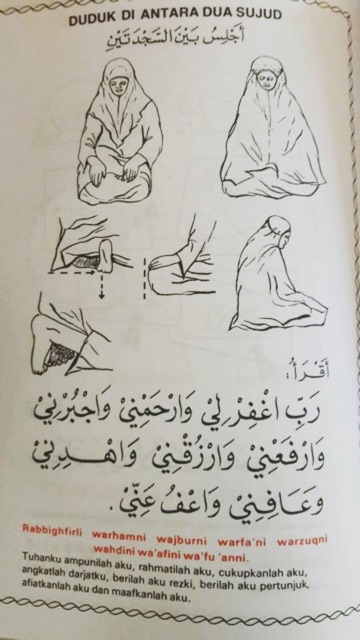 DUDUK DI ANTARA DUA SUJUD
أَجْلِسُ بَيْنَ السَّجْدَتَيْنِ
أَقْرَأُ:
رَبِّ اغْفِرْ لِيْ وَارْحَمْنِيْ وَاجْبُرْنِيْ
وَارْفَعْنِيْ وَارْزُقْنِيْ وَاهْدِنِيْ
وَعَافِنِيْ وَاعْفُ عَنِّيْ.
Rabbighfirli warhamni wajburni warfa'ni warzuqni
wahdini wa'afini wa'fu 'anni.
Tuhanku ampunilah aku, rahmatilah aku, cukupkanlah aku,
angkatlah darjatku, berilah aku rezki, berilah aku pertunjuk,
afiatkanlah aku dan maafkanlah aku.